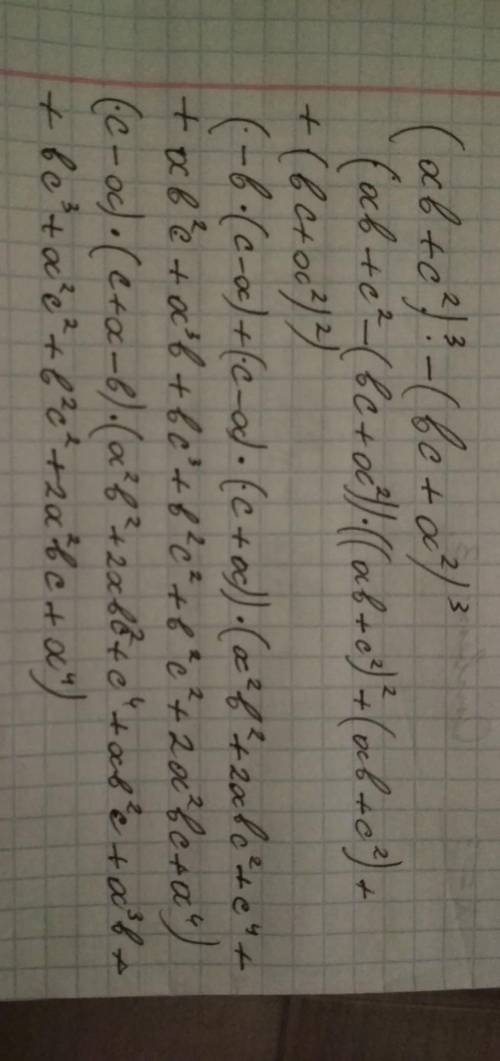 (ab+c²)³·-(bc+a²)³
(ab+c²-(bc+a²))·((ab+c²)²+(ab+c²)+
+(bc+a²)²)
(·-b·(c-a)+(·c-a)·(·c+a))·(a²b²+2abc²+c⁴+
+ab²c+a³b+bc³+b²c²+b²c²+2a²bc+a⁴)
(·c-a)·(c+a-b)·(a²b²+2abc²+c⁴+ab²c+a³b+
+bc³+a²c²+b²c²+2a²bc+a⁴)